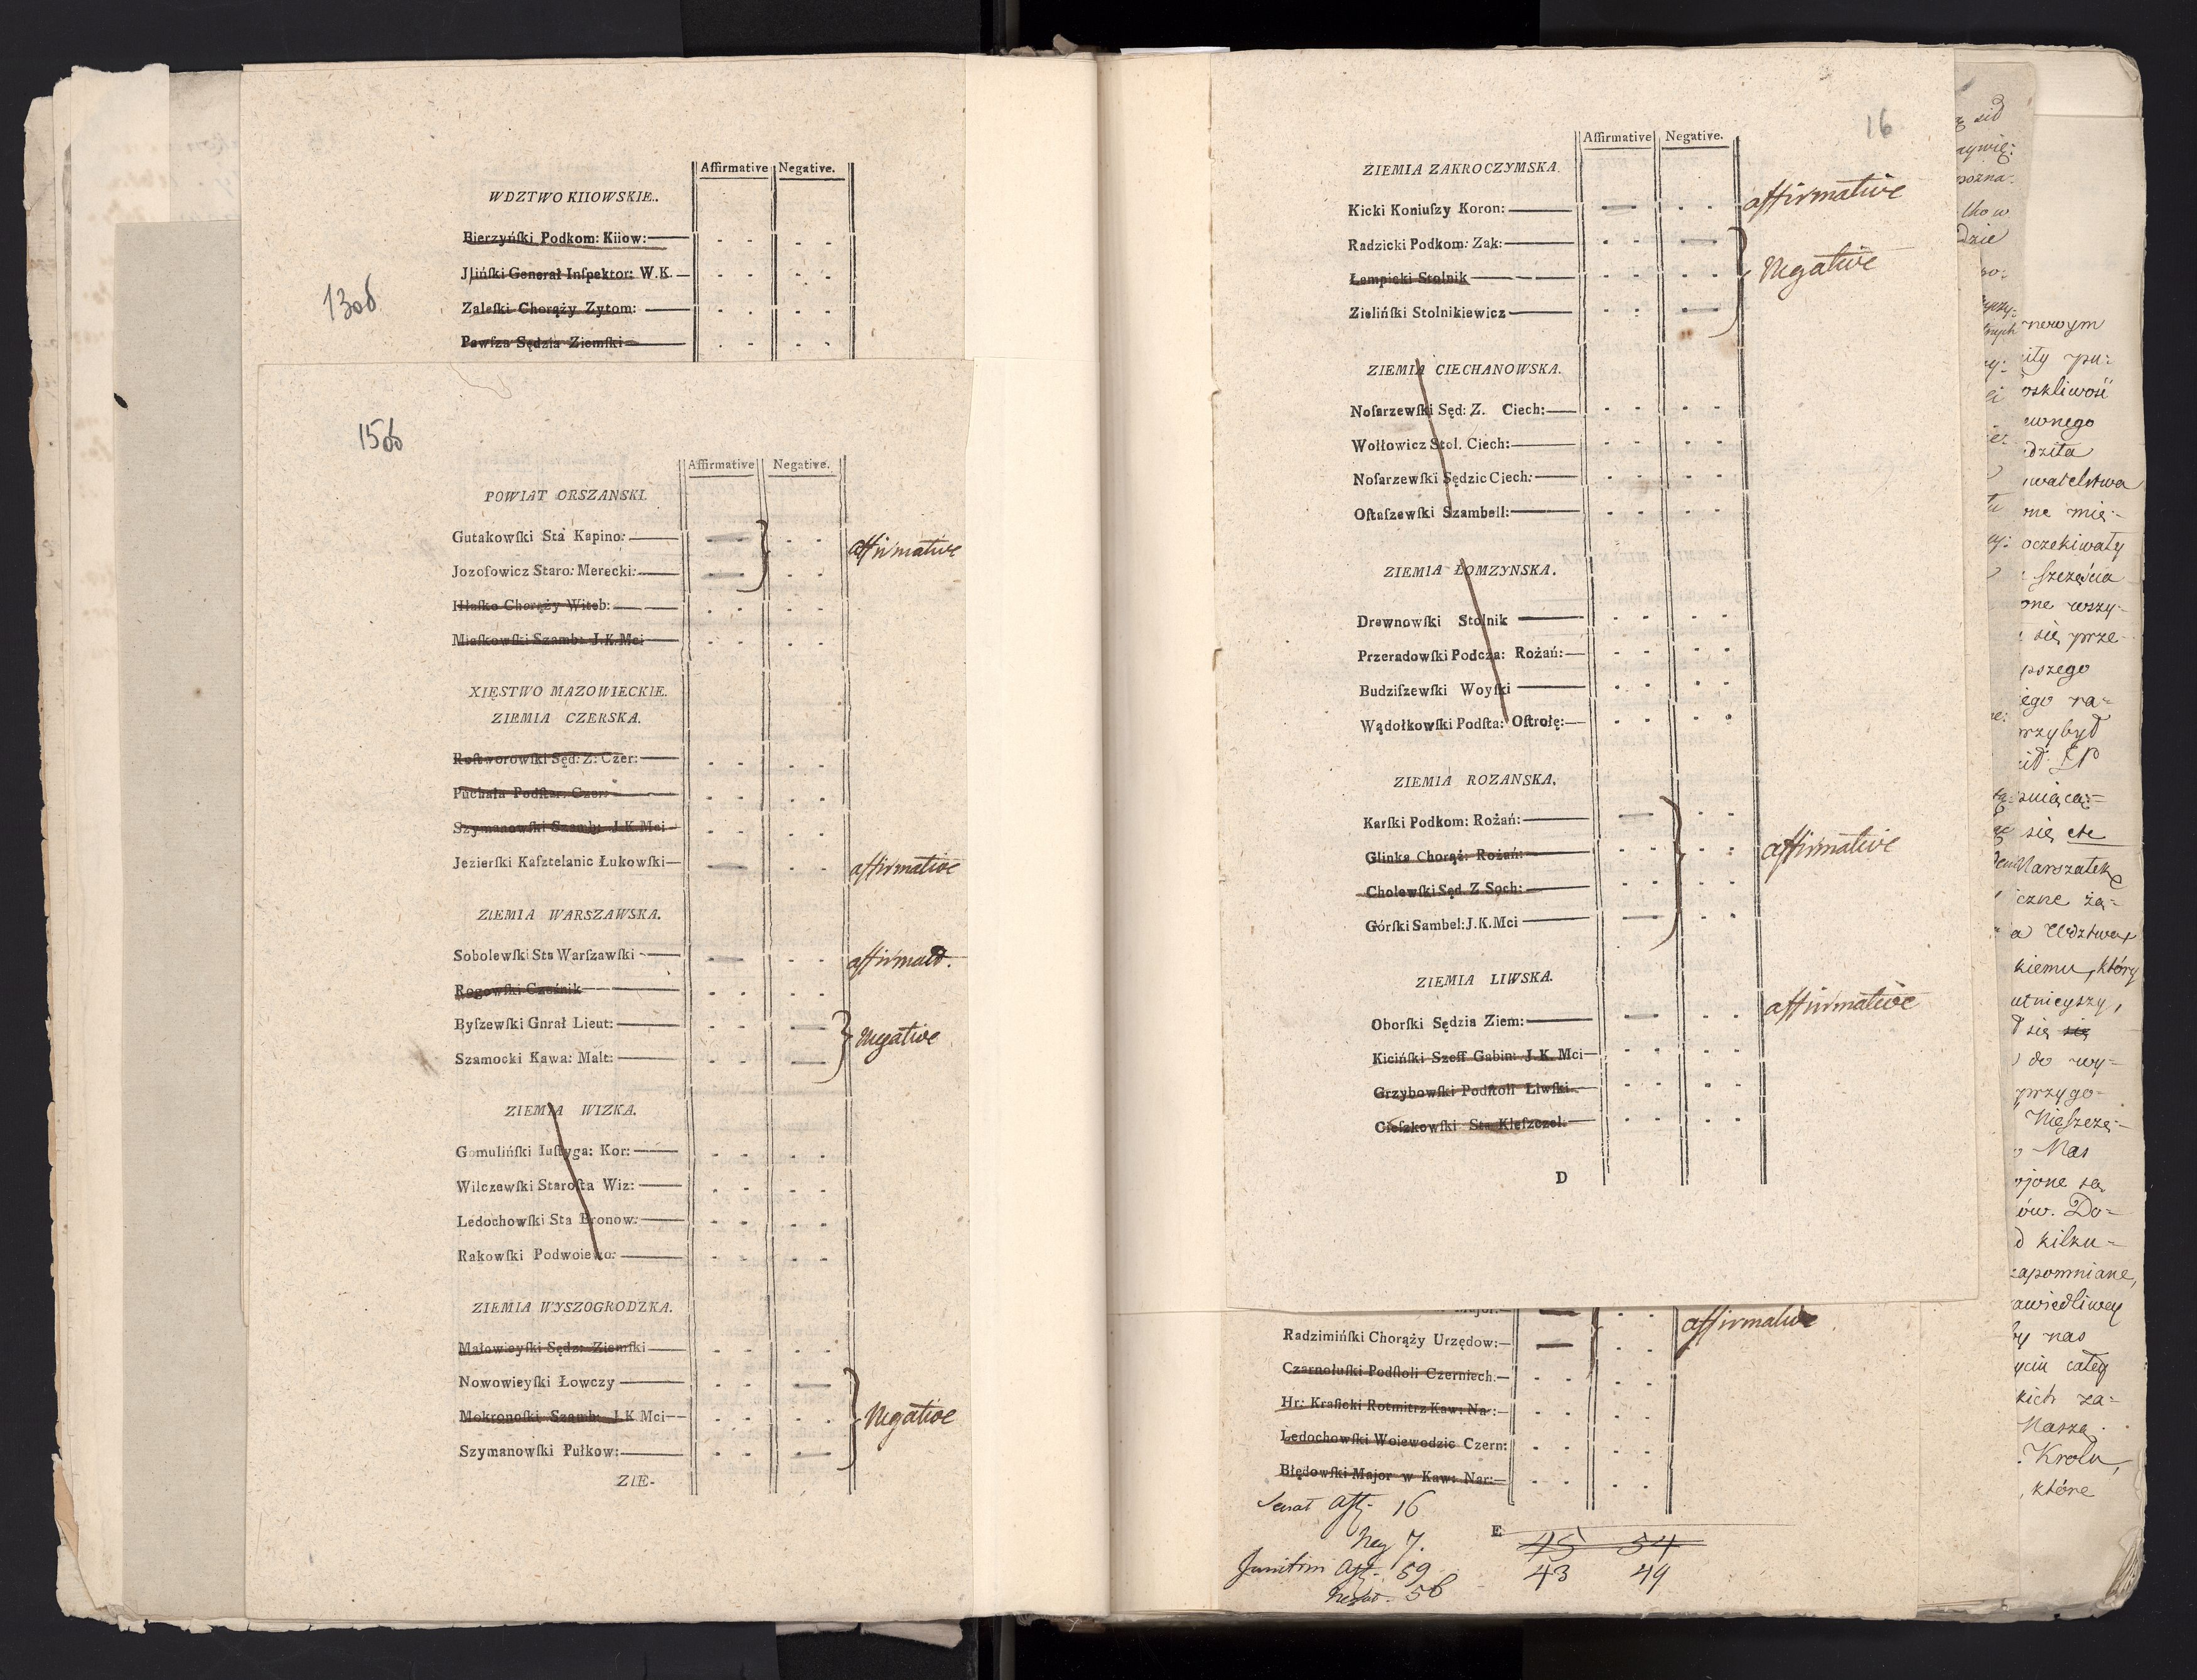 Affirmative Negative.
WDZTWO KIIOWSKIE.
Bierzyńſki Podkom: Kiiow:
Jlińſki Generał Inſpektor: W.K.
Zaleſki Chorąży Zytom:
Pawſza Sędzia Ziemſki
130b
150b
Affirmative Negative.
POWIAT ORSZANSKI.
Gutakowſki Sta Kapino:
Jozofowicz Staro: Merecki:
affirmative
Hłaſko Chorąży Witeb:
Miaſkowſki Szamb: J.K.Mci
XIĘSTWO MAZOWIECKIE.
ZIEMIA CZERSKA.
Roſtworowſki Sęd: Z: Czer:
Puchała Podſtar: Czer:
Szymanowſki Szamb: J.K.Mci
Jezierſki Kaſztelanic Łukowſki
affirmative
ZIEMIA WARSZAWSKA.
Sobolewſki Sta Warſzawſki
affirmat.
Rogowſki Cześnik
Byſzewſki Gnrał Lieut:
Szamocki Kawa: Malt:
Negative
ZIEMIA WIZKA.
Gomulińſki Iuſtyga: Kor:
Wilczewſki Staroſta Wiz:
Ledochowſki Sta Bronow:
Rakowſki Podwoiewo:
ZIEMIA WYSZOGRODZKA.
Małowieyſki Sędz: Ziemſki
Nowowieyſki Łowczy
Mokronoſki Szamb: J.K Mci
Negative
Szymanowſki Pułkow:
ZIE-
16
Affirmative Negative.
ZIEMIA ZAKROCZYMSKA.
Kicki Koniuſzy Koron:
affirmative
Radzicki Podkom: Zak:
Łempicki Stolnik
Negative
Zielińſki Stolnikiewicz
ZIEMIA CIECHANOWSKA.
Noſarzewſki Sęd: Z. Ciech:
Wołłowicz Stol. Ciech:
Noſarzewſki Sędzic Ciech:
Oſtaſzewſki Szambell:
ZIEMIA ŁOMZYNSKA.
Drewnowſki Stolnik
Przeradowſki Podcza: Rożań:
Budziſzewſki Woyſki
Wądołkowſki Podſta: Oſtrołę:
ZIEMIA ROZANSKA.
Karſki Podkom: Rożań:
Glinka Chorąż: Rożań:
affirmative
Cholewſki Sęd. Z Soch:
Górſki Sambel: J.K.Mci
ZIEMIA LIWSKA.
Oborſki Sędzia Ziem:
affirmative
Kicińſki Szeff Gabin: J.K.Mci
Grzybowſki Podſtoli Liwſki
Cieſzkowſki Sta Kleſzczel:
D
Major:
affirmative
Radzimińſki Chorąży Urzędow:
Czarnołuſki Podſtoli Czerniech:
Hr: Kraſicki Rotmitrz Kaw: Na:
Ledochowſki Woiewodzic Czern:
Błędowſki Major w Kaw: Nar:
Senat aff- 16
E 45 54
Neg 7.
43 49
Junctim aff- 59
56
nowym
oskliwość
ewnego
one mię-
oczekiwały
szczęścia
one wszy-
się prze-
pszego
ego ra-
przybył
się etc
Marszałek
czne żą-
kiemu, który
utnieyszy,
ł się się
do wy-
przygo-
Nieszczę-
Nas
ojone są
ów. Do-
d kilku-
zapomniane,
awiedliwey
by nas
yciu całey
kich za-
Naszą
Krolu,
które